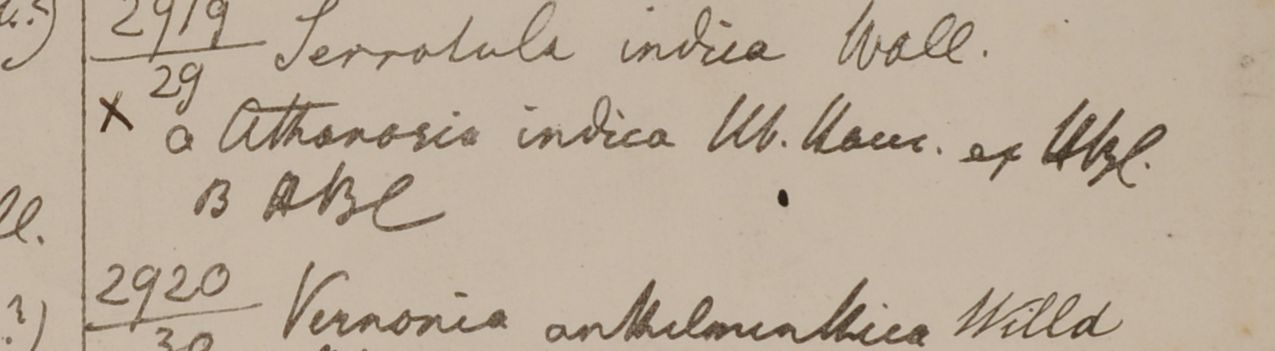 2919/29 Serratula indica Wall.
X a Athanasia indica Hb. Ham. ex HBl.
B HBl
2920/30 Vernonia anthelminthica Willd